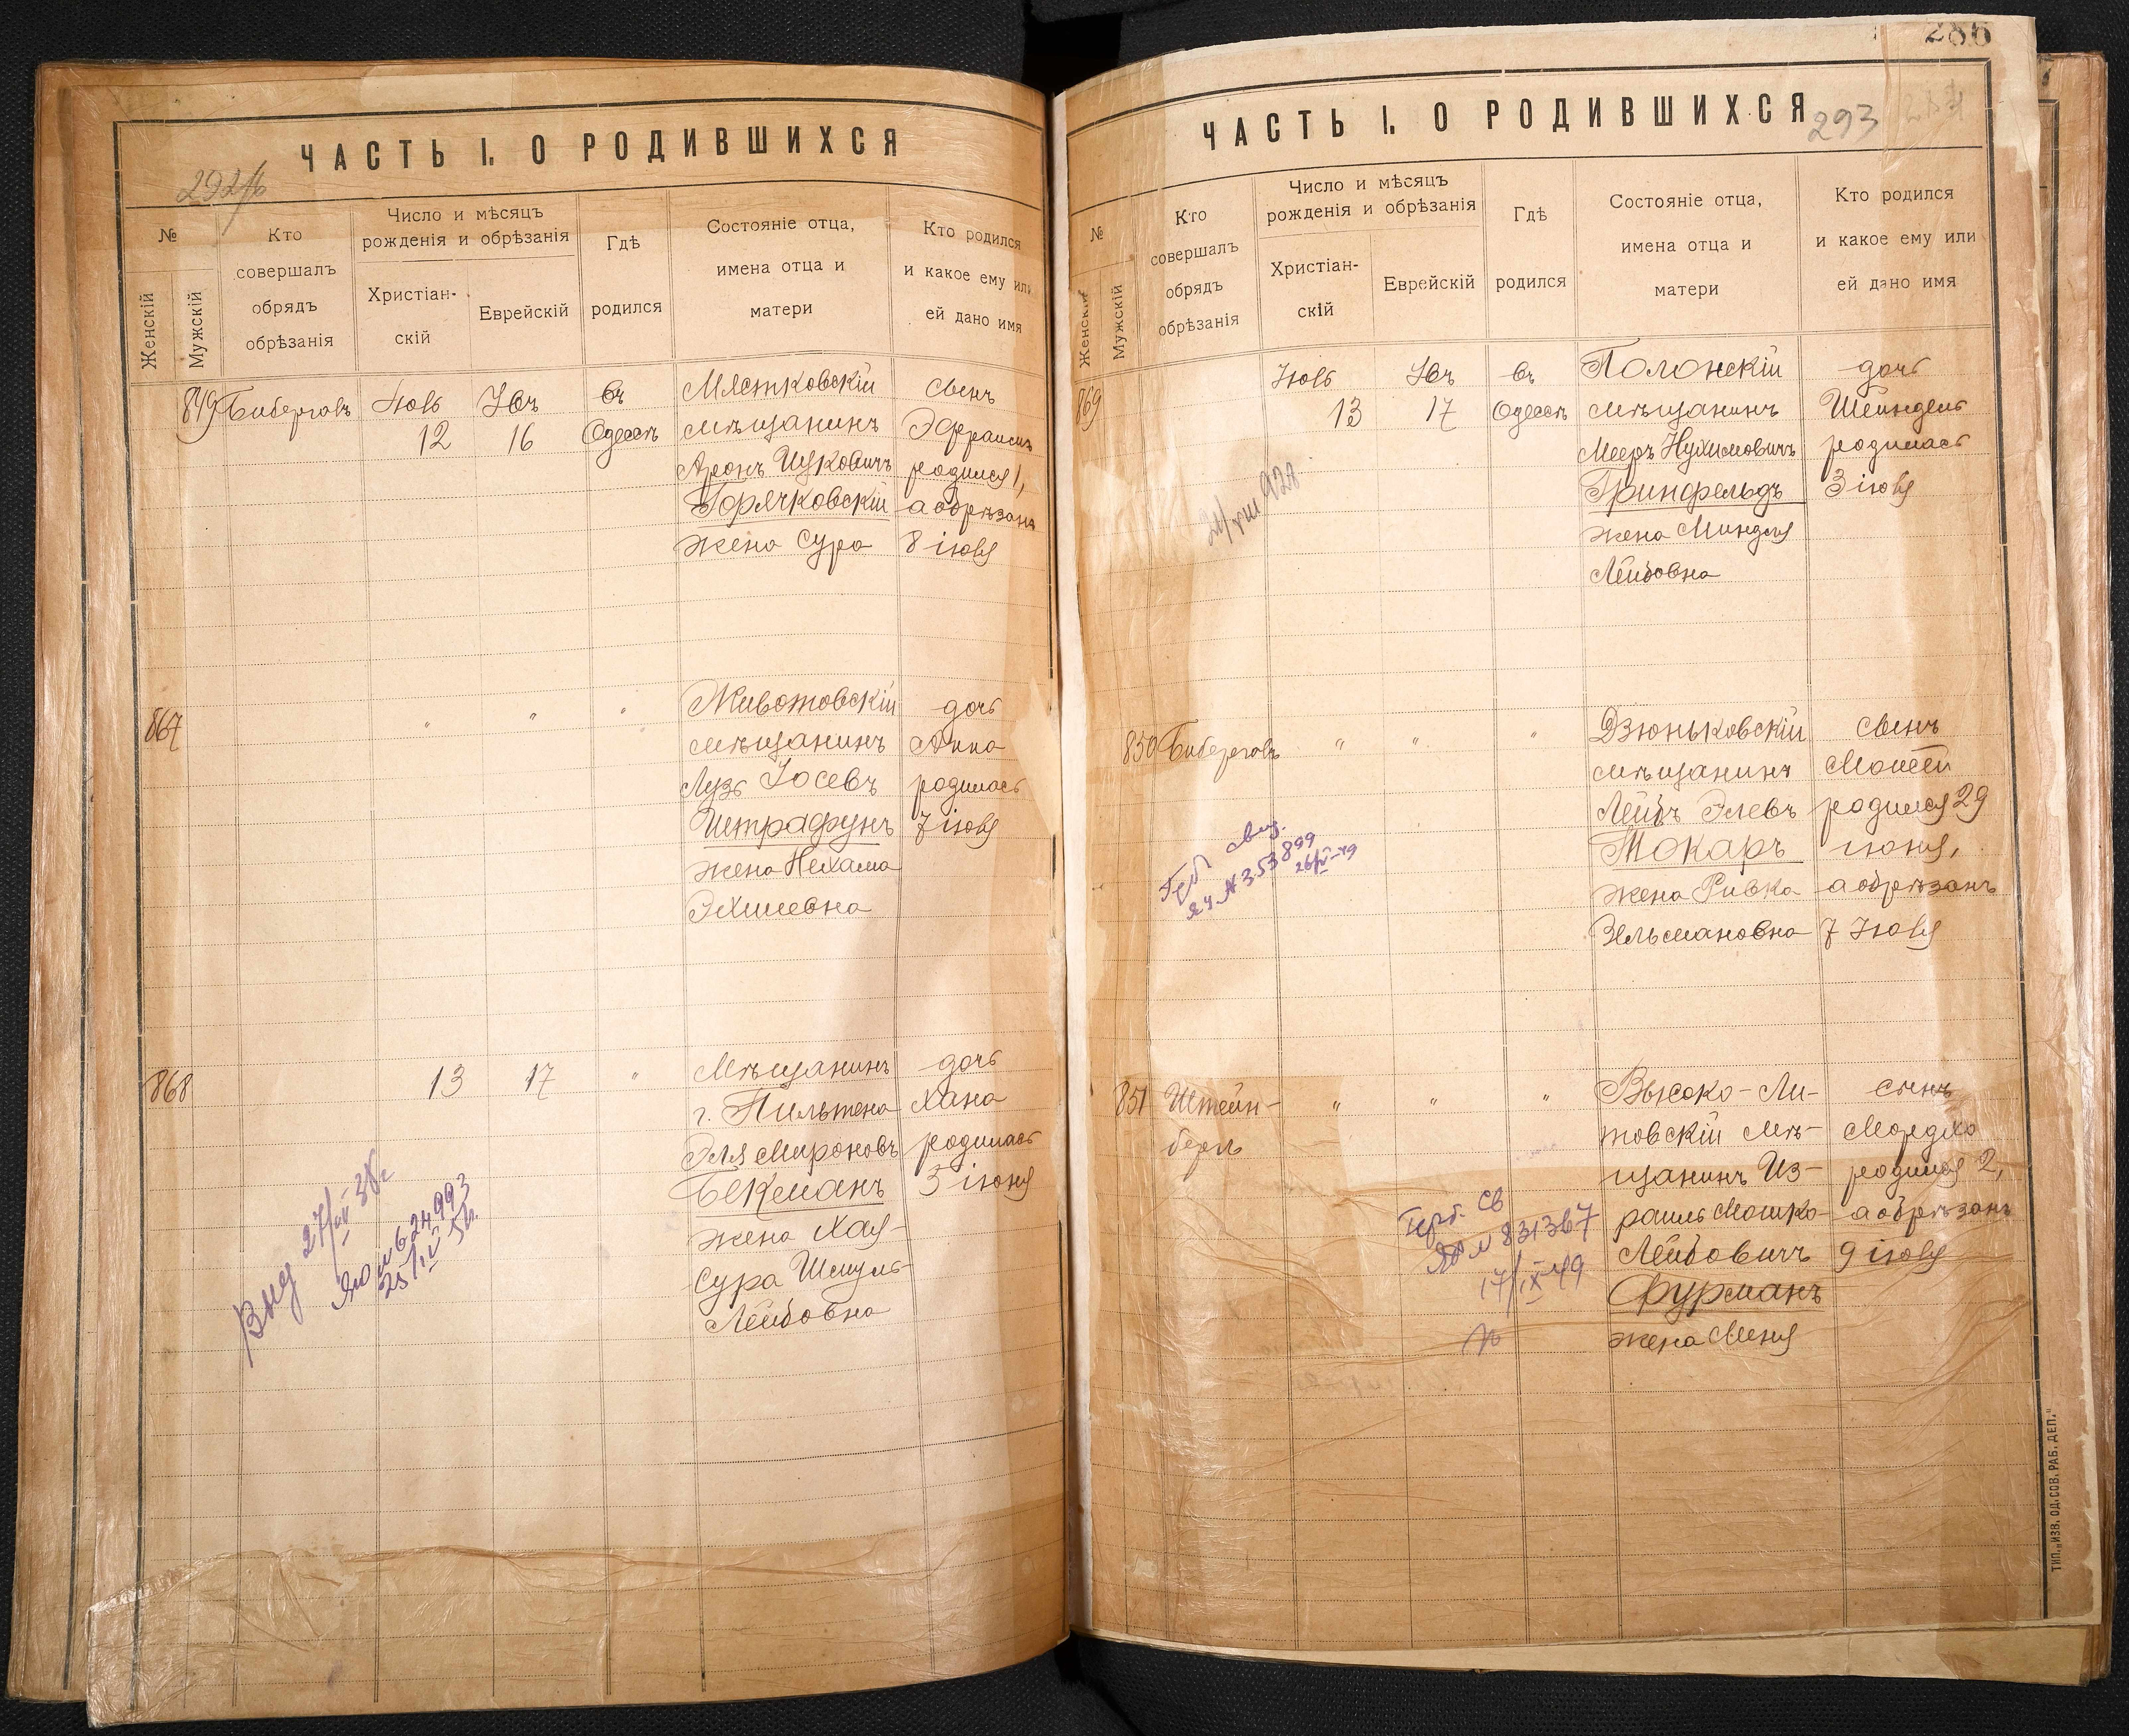 ЧАСТЬ I. О РОДИВШИХСЯ
№
Женскій
Мужскій
Кто
совершалъ
обрядъ
обрѣзанія
Число и мѣсяцъ
рожденія и обрѣзанія
Христіан-
скій
Еврейскій
Гдѣ
родился
Состояніе отца,
имена отца и
матери
Кто родился
и какое ему или
ей дано имя
849 Биберговъ Іюль 12 16 въ Одессѣ
Мястковскій
мѣщанинъ
Аронъ Ицковичъ
Горячковскій
жена Сура
сынъ
Эфраимъ
родился 1,
а обрѣзанъ
8 іюля
867 " " "
Животовскій
мѣщанинъ
Лузь Іосевъ
Штрафунъ
жена Нехама
дочь
Анна
родилась
7 іюля
868 13 17 "
Мѣщанинъ
г. Пильтена
Эля Мироновъ
Бекманъ
жена Хая-
Сура Шмуль-
Лейбовна
дочь
Хана
родилась
3 іюня
624993
ЧАСТЬ I. О РОДИВШИХСЯ
293
286
№
Женскій
Мужскій
Кто
совершалъ
обрядъ
обрѣзанія
Число и мѣсяцъ
рожденія и обрѣзанія
Христіан-
скій
Еврейскій
Гдѣ
родился
Состояніе отца,
имена отца и
матери
Кто родился
и какое ему или
ей дано имя
869 Іюль 13 17 въ Одессѣ
Полонскій
мѣщанинъ
Мееръ Нухимовичъ
Гринфельдъ
жена Миндля
Лейбовна
дочь
Шейндель
родилась
3 іюля
850 Биберговъ " " "
Дзюньковскій
мѣщанинъ
Лейбъ Элевъ
Токарь
жена Ривка
Зельмановна
сынъ
Моисей
родился 29
іюня,
а обрѣзанъ
7 Іюля
№ 353899
851 Штейн-
бергъ
" " "
Высоко-Ли-
товскій мѣ-
щанинъ Из-
раиль Мошко-
Лейбовичъ
Фурманъ
жена Меня
сынъ
Мордко
родился 2,
а обрѣзанъ
9 іюля
№ 831367
17/IX-49
ТИП. „ИЗВ. ОД. СОВ. РАБ. ДЕП."